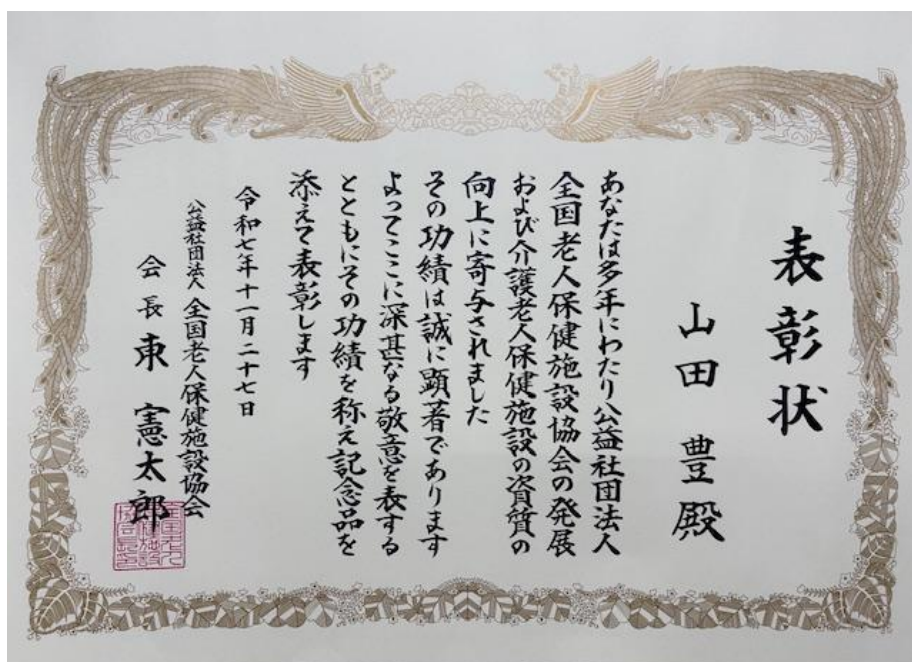 表彰状
山田 豊 殿
あなたは多年にわたり公益社団法人
全国老人保健施設協会の発展
および介護老人保健施設の資質の
向上に寄与されました
その功績は誠に顕著であります
よってここに深甚なる敬意を表する
とともにその功績を称え記念品を
添えて表彰します
令和七年十一月二十七日
公益社団法人 全国老人保健施設協会
会長 東 憲太郎